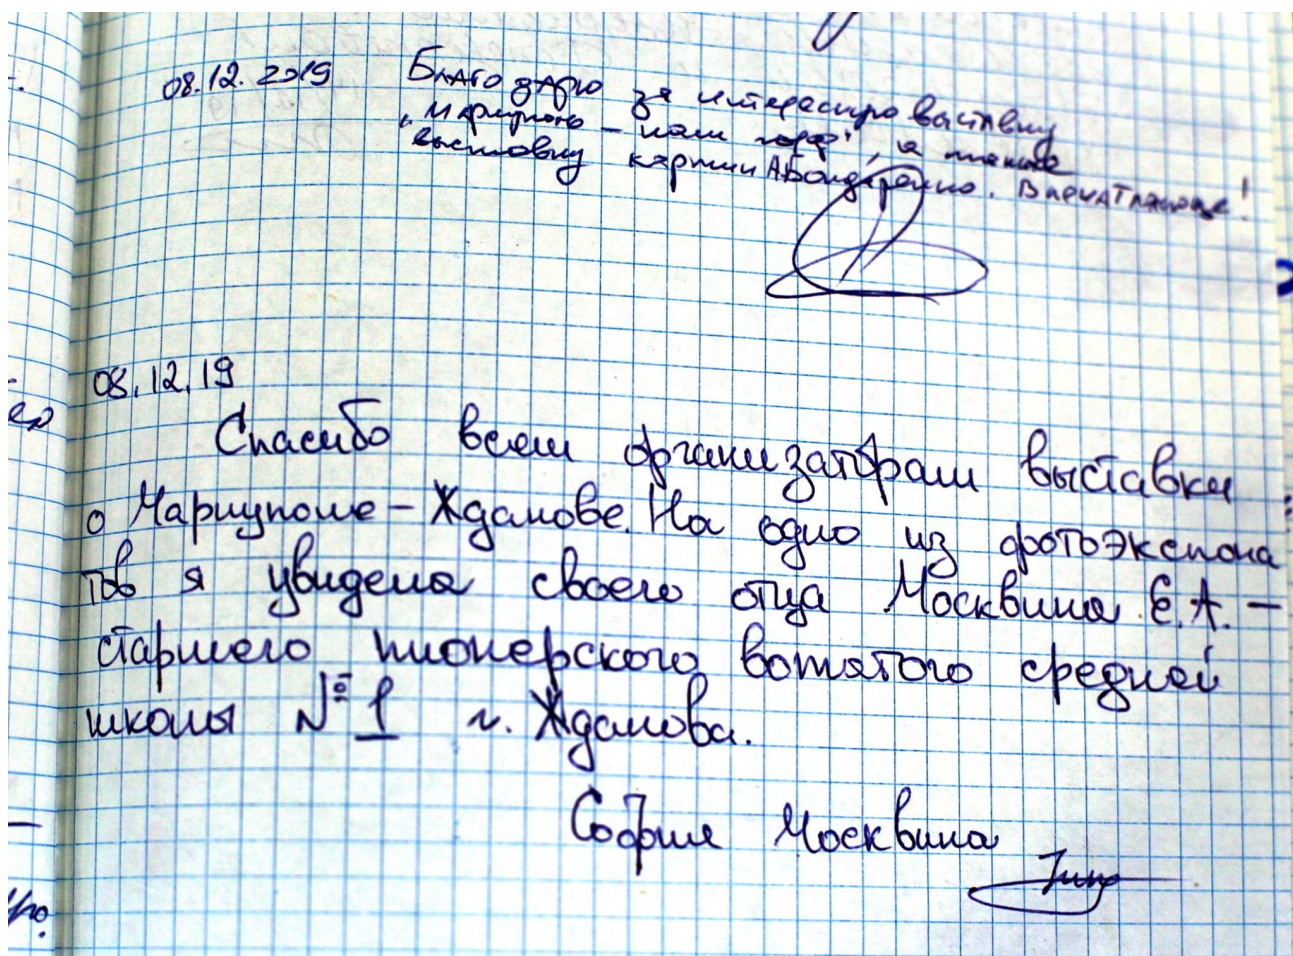 08.12.2019 Благодарю за интересную выставку
„Мариуполь – наш город", а также
выставку картин А.Бондаренко. Впечатляюще!
08.12.19
Спасибо всем организаторам выставки
о Мариуполе – Жданове. На одно из фотоэкспона
тов я увидела своего отца Москвина Е.А. –
старшего пионерского вожатого средней
школы № 1 г. Жданова.
София Москвина